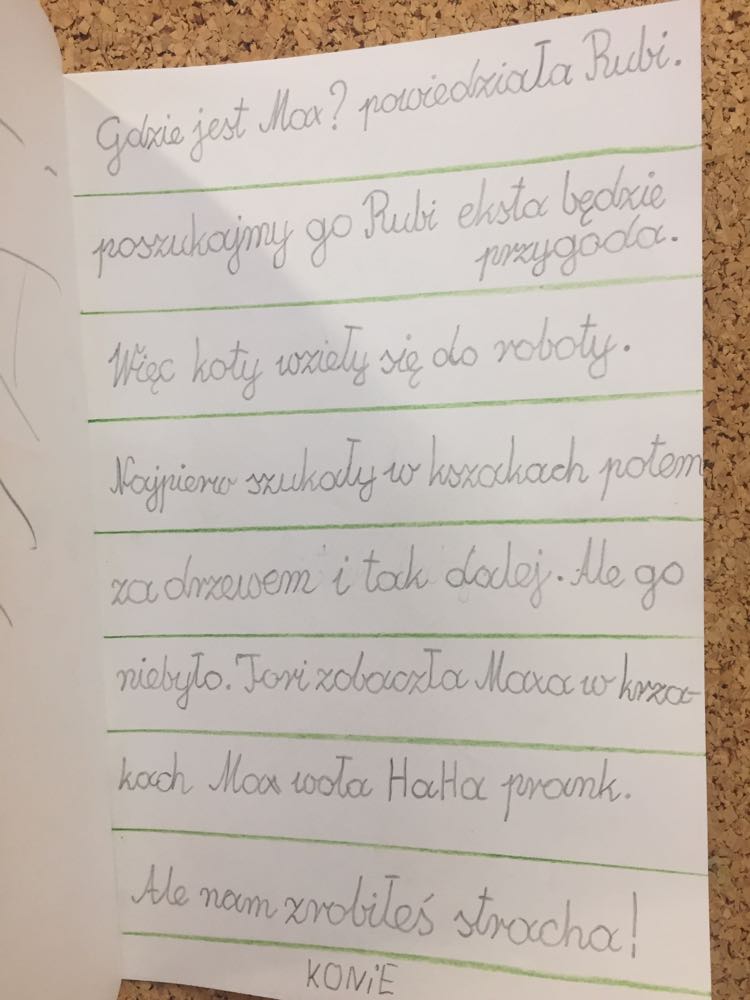 Gdzie jest Max? powiedziała Rubi.
poszukajmy go Rubi eksta będzie
przygoda.
Więc koty wzieły się do roboty.
Najpierw szukały w kszakach potem
za drzewem i tak dalej. Ale go
niebyło. Tori zobaczła Maxa w krza-
kach Max woła HaHa prank.
Ale nam zrobiłeś stracha!
KONiE